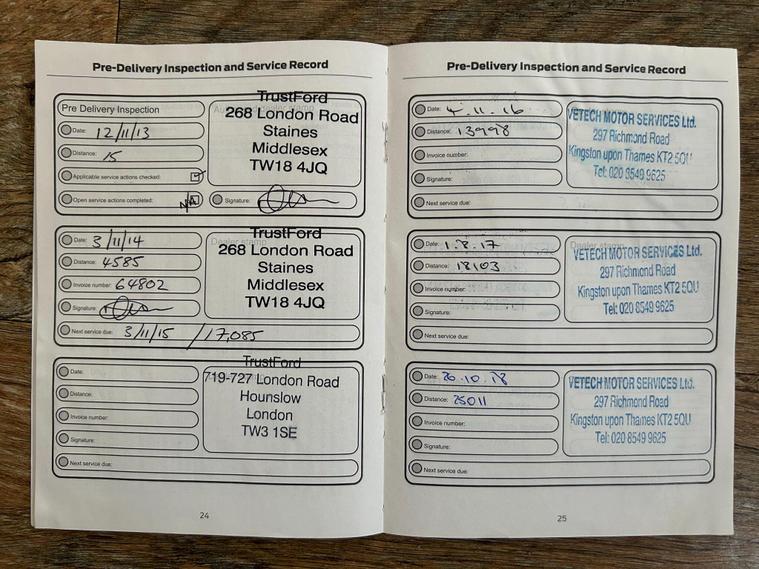 Pre-Delivery Inspection and Service Record
Pre Delivery Inspection
Date: 12/11/13
Distance: 15
Applicable service actions checked:
Open service actions completed: N/A
TrustFord
268 London Road
Staines
Middlesex
TW18 4JQ
Signature:
Date: 3/11/14
Distance: 4585
Invoice number: 64802
Signature:
Next service due: 3/11/15 / 17,085
Dealer stamp
TrustFord
268 London Road
Staines
Middlesex
TW18 4JQ
Date:
Distance:
Invoice number:
Signature:
Next service due:
TrustFord
719-727 London Road
Hounslow
London
TW3 1SE
24
Pre-Delivery Inspection and Service Record
Date: 4.11.16
Distance: 13998
Invoice number:
Signature:
Next service due:
VETECH MOTOR SERVICES Ltd.
297 Richmond Road
Kingston upon Thames KT2 5QU
Tel: 020 8549 9625
Date: 1.8.17
Distance: 18103
Invoice number:
Signature:
Next service due:
Dealer stamp
VETECH MOTOR SERVICES Ltd.
297 Richmond Road
Kingston upon Thames KT2 5QU
Tel: 020 8549 9625
Date: 20.10.18
Distance: 25011
Invoice number:
Signature:
Next service due:
VETECH MOTOR SERVICES Ltd.
297 Richmond Road
Kingston upon Thames KT2 5QU
Tel: 020 8549 9625
25